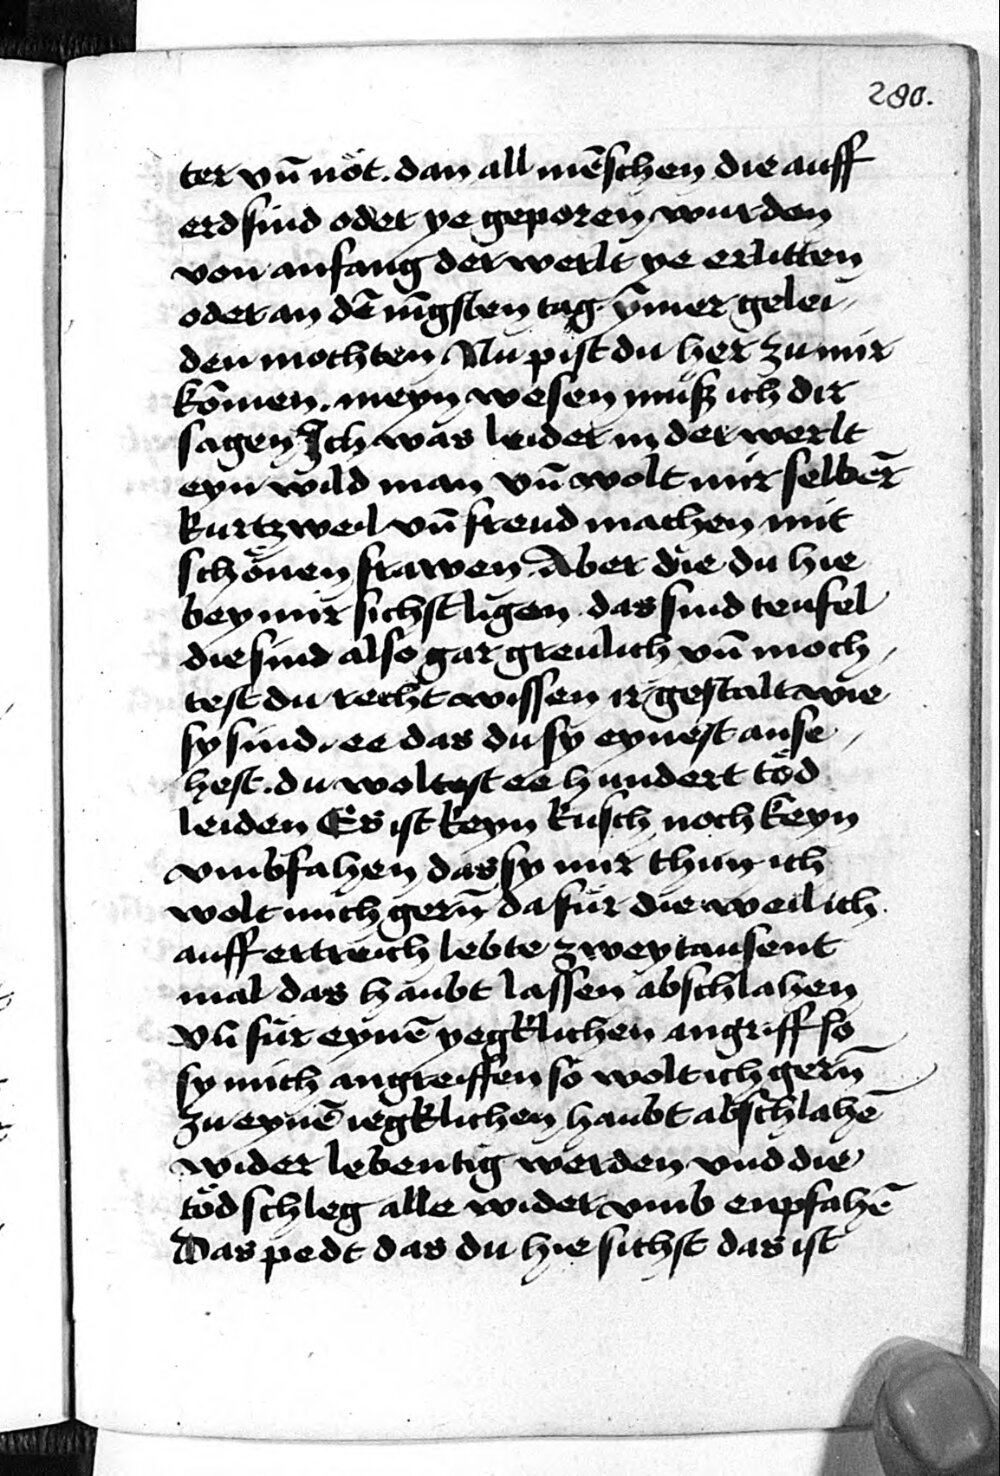 280.
ter vn̄ nöt. dan all mēschen die auff
erd sind oder ye geporen wurden
von anfang der werlt ye erlitten
oder an dē iūgsten tag ȳmer gelei-
den mochten Nu pist du her zu mir
kōmen. meyn wesen muß ich dir
sagen Ich was leider in der werlt
eyn wild man vn̄ wolt mir selber̄
kurtzweil vn̄ freud machen mit
schönen frawen. Aber die du hie
bey mir sichst ligen das sind teufel
die sind also gar greulich vn̄ moch-
test du recht wissen ir gestalt wie
sy sind. ee das du sy eynest anse-
hest. du woltest ee hundert töd
leiden Es ist keyn kusch noch keyn
vmbfahen das sy mir thun ich
wolt mich gern̄ dafür die weil ich
auff ertreich lebte zwey tausent
mal das haubt lassen abschlahen
vn̄ für eynē yegklichen angriff so
sy mich angreiffen so wolt ich gern̄
zu eynē iegklichen haubt abschlahē
wider lebentig werden vnd die
töd schleg alle wider vmb enpfahē
Das pedt das du hie sichst das ist